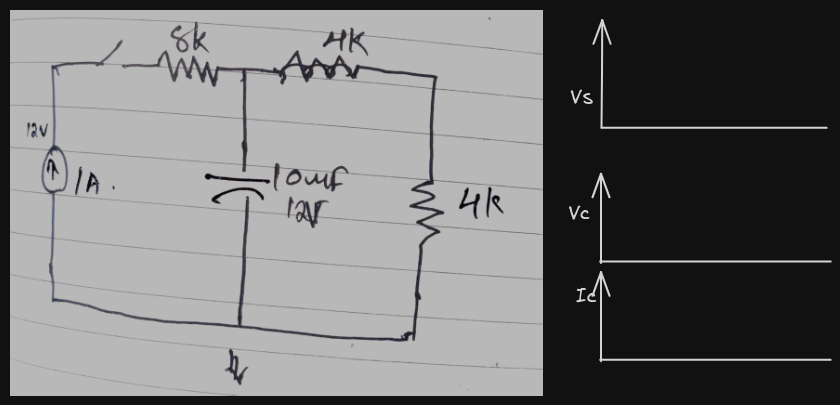 8k
4K
12V
1A.
10uf
12V
4k
Vs
Vc
Ic